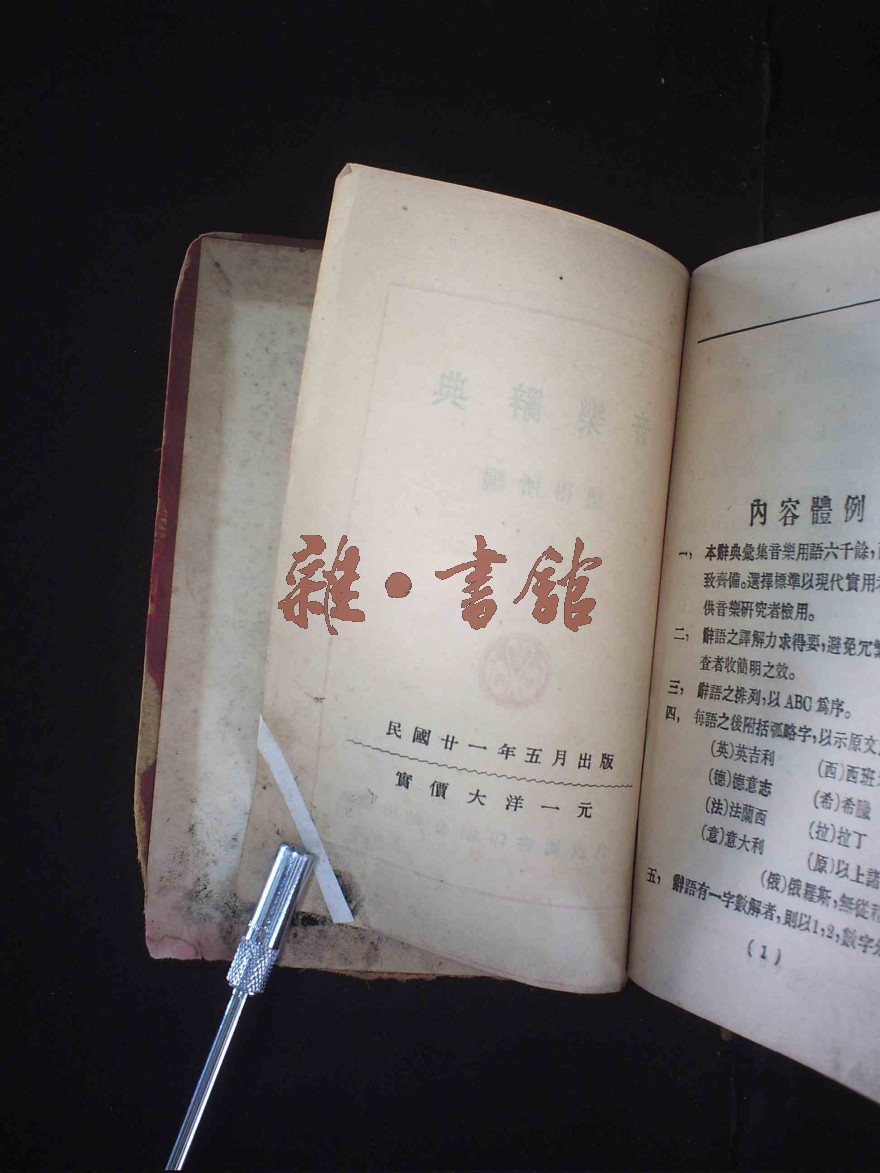 雜·書館
民國廿一年五月出版
實價大洋一元
內容體例
一，本辭典彙集音樂用語六千餘，
致齊備。選擇標準以現代實用
供音樂研究者檢用。
二，辭語之譯解力求得要，避免冗
查者收簡明之效。
三，辭語之排列，以ABC爲序。
四，每語之後附括弧略字，以示原文
(英)英吉利 (西)西班
(德)德意志 (希)希臘
(法)法蘭西 (拉)拉丁
(意)意大利 (原)以上諸
(俄)俄羅斯，無從
五，辭語有一字數解者，則以1，2，數字
(1)
音樂辭典